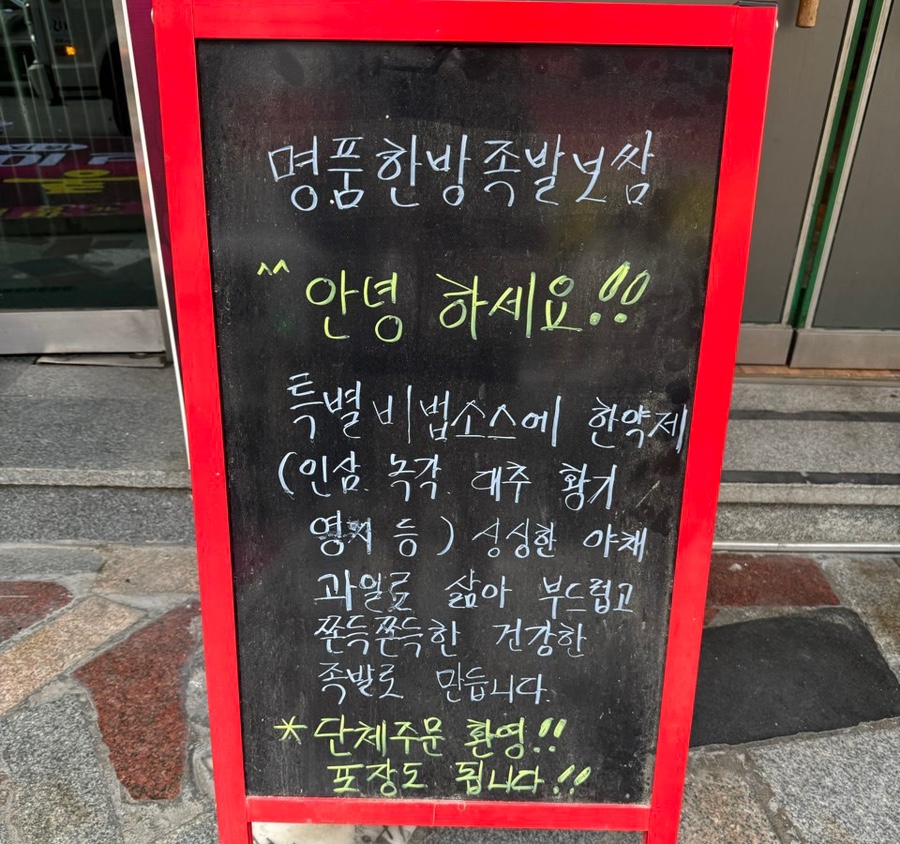 명품한방족발보쌈
^^ 안녕 하세요!!
특별비법소스에 한약제
(인삼. 녹각. 대추 황기
영지 등) 싱싱한 야채
과일로 삶아 부드럽고
쫀득쫀득한 건강한
족발로 만듭니다.
*단체주문 환영!!
포장도 됩니다!!